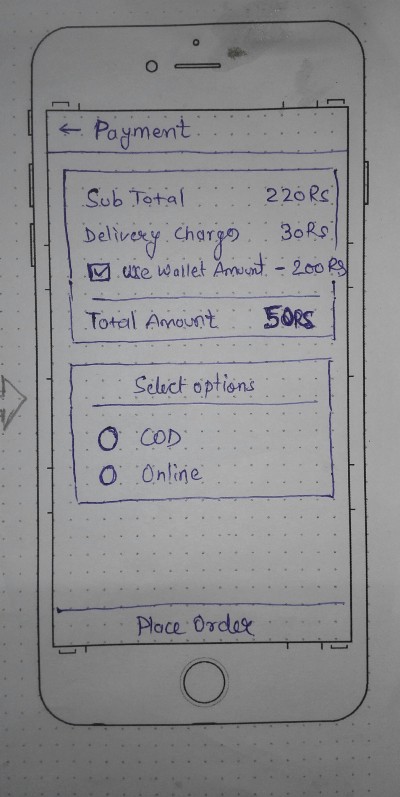 ← Payment
Sub Total 220Rs
Delivery Charges 30Rs
Use Wallet Amount - 200Rs
Total Amount 50Rs
Select options
COD
Online
Place Order